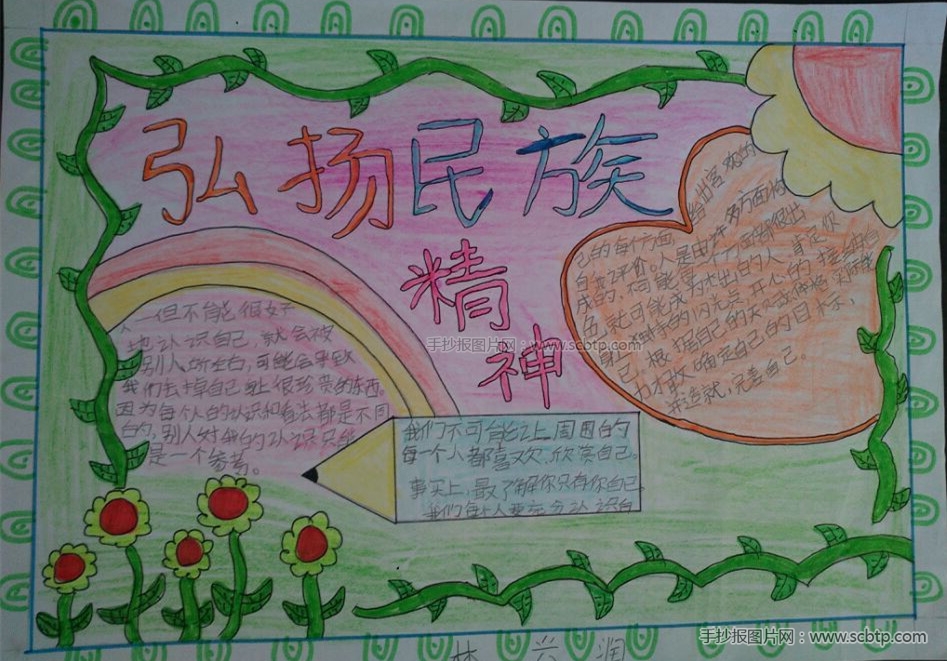 弘扬民族
精
神
一但不能很好
地认识自己，就会被
别人所左右，可能会导致
我们去掉自己身上很珍贵的东西。
因为每个人的认识和看法都是不同
的，别人对我的认识只能
是一个参考。
我们不可能让周围的
每一个人都喜欢、欣赏自己。
事实上，最了解你只有你自己
我们每个人要充分认识自
己的每个方面，给出客观的
自我评价。人是由许多方面构
成的，不可能每个方面都很出
色，就可能成为杰出的人，肯定你
身上独特的闪光点，开心的接纳自
己，根据自己的
确定自己的目标，
完善自己。
手抄报图片网：www.scbtp.com
手抄报图片网：www.scbtp.com
林兴润